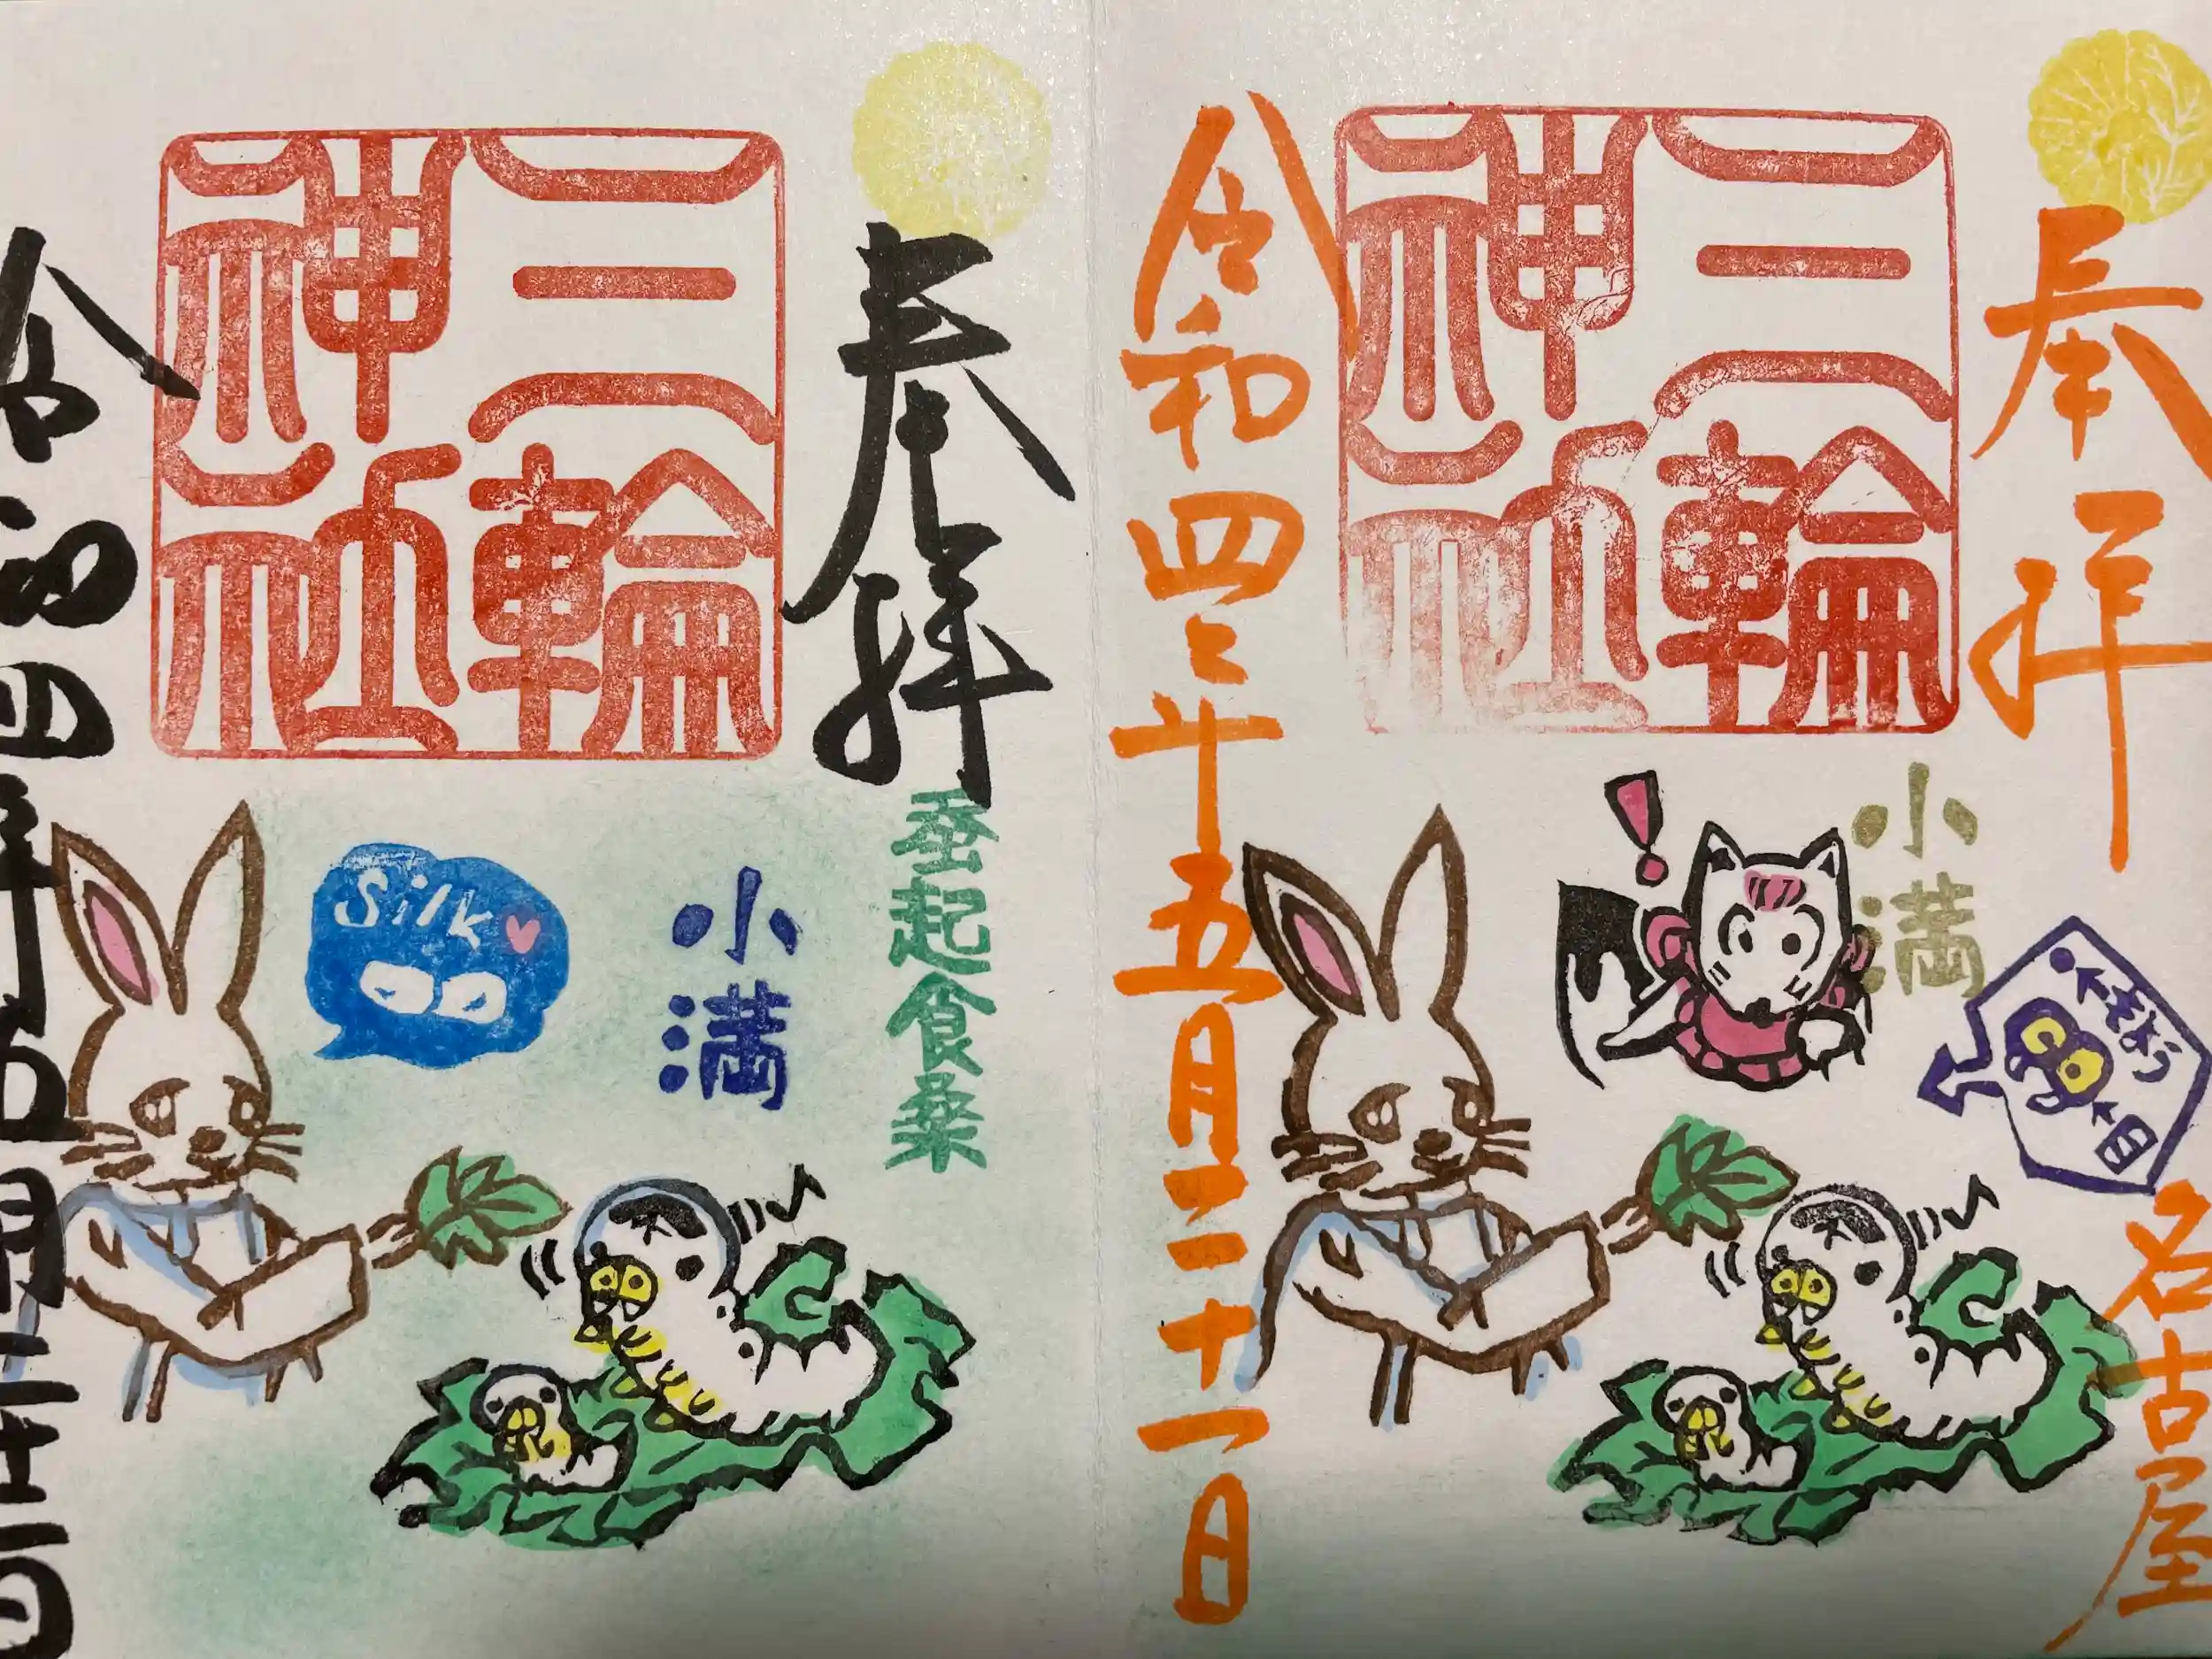 奉拝
三輪神社
小満
←もよう
←目
名古屋
令和四年五月二十一日
奉拝
三輪神社
蚕起食桑
小満
Silk
令和四年五月